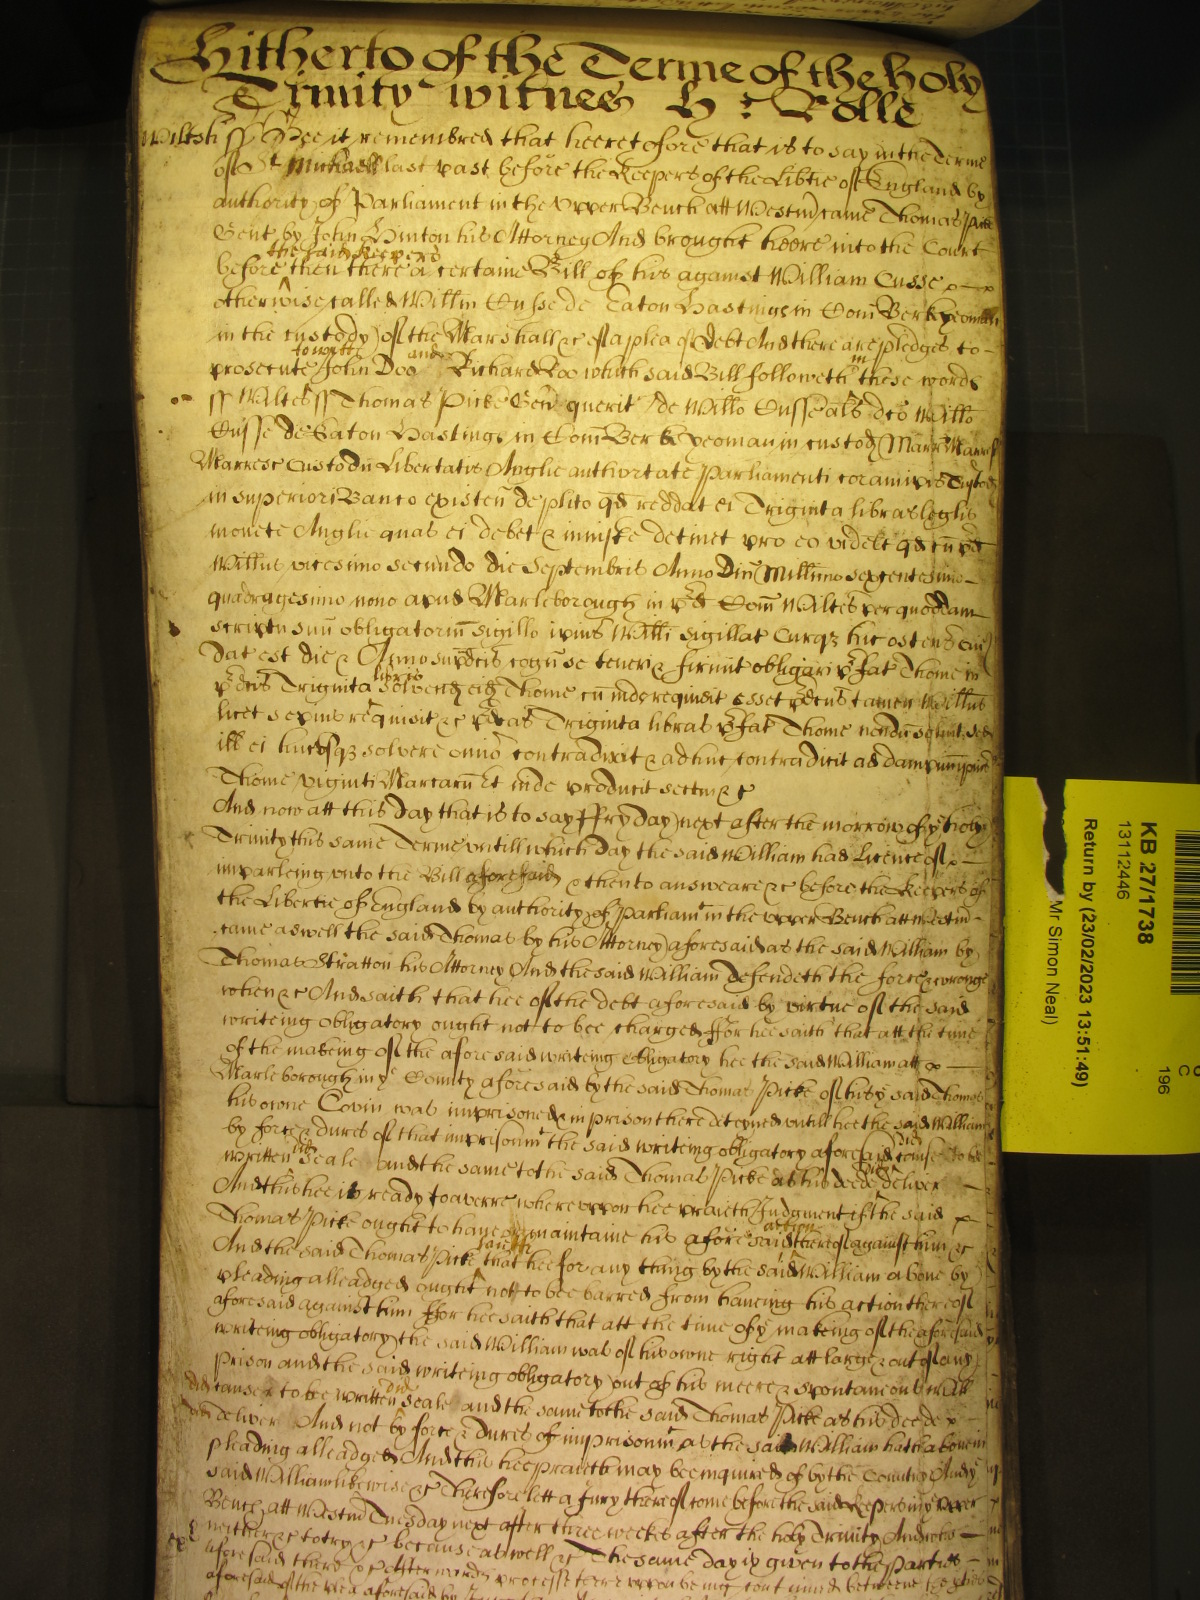 Hitherto of the Terme of the holy
Trinity witnes H : Rolle
Wiltsh ss Bee it remembred that heeretofore that is to say in the Terme
of St Michaell last past before the Keepers of the Libtie of England by
authority of Parliament in the upper Bench att Westm came Thomas Picke
Gent by John Hinton his Attorney And brought heere into the Court
the said Keepers
before then there a certaine Bill of his against William Cusse
otherwise called Willm Cusse de Eaton Hastings in Com Berk yeoman
in the custody of the Marshall &c of a plea of Debt And there are pledges to
to witt and in
prosecute John Doo Richard Roo which said Bill followeth these words
ss Wiltes ss Thomas Picke Gen querit de Willo Cusse als dco Willo
Cusse de Eaton Hastings in Com Berk yeoman in custod Marr
Marresc Custodu Libertatis Anglie authoritate Parliamenti coram ipis Custod
in superiori Banco existen de plito qd reddat ei Triginta libras leglis
monete Anglie quas ei debet & iniuste detinet pro eo videlt qd cu pd
Willus vicesimo secundo die Septembris Anno Dni Millimo sexcentesimo
quadragesimo nono apud Marleborough in pd Com Wiltes per quoddam
scriptu suu obligatoriu sigillo ipius Willi sigillat Curq hic ostens cui
dat est die & Anno supdcis cogn se teneri & firmit obligari pfat Thome in
libris
pdcis Triginta solvend eid Thome cu inde requisit esset pdcus tamen Willus
licet sepius requisit &c pdcas Triginta libras pfat Thome nondu solvit sed
ill ei hucusq solvere omio contradixit & adhuc contradicit ad dampnu ipius
Thome viginti Marcaru Et inde producit sectm &c
And now att this day that is to say ffryday next after the morrow of ye holy
Trinity this same Terme untill which day the said William had Licence of
imparleing unto the Bill aforesaid & then to answeare &c before the Keepers of
the Libertie of England by authority of Parliamt in the upper Bench att Westm
came aswell the said Thomas by his Attorney aforesaid as the said William by
Thomas Stratton his Attorney And the said William defendeth the force & wronge
when &c And saith that hee of the debt aforesaid by virtue of the said
writeing obligatory ought not to bee charged ffor hee saith that att the time
of the makeing of the aforesaid writeing obligatory hee the said William att
Marleborough in ye County aforesaid by the said Thomas Picke of his ye said Thomas
his owne Covin was imprisoned & in prison there deteyned untill hee the said William
by force & dures of that imprisonmt the said writeing obligatory aforesaid did cause to be
written did seale and the same to the said Thomas Picke as his deede did deliver
And this hee is ready to averre whereuppon hee praieth Judgment if the said
Thomas Picke ought to have or maintaine his aforesaid action thereof against him &c
And the said Thomas Picke saith that hee for any thing by the said William above by
pleading alleadged ought not to bee barred from haveing his action thereof
aforesaid against him ffor hee saith that att the time of ye makeing of the aforesaid
writeing obligatory the said William was of his owne right att large & out of any
prison and the said writeing obligatory out of his meere & spontaneous will
did cause to bee written did seale and the same to the said Thomas Picke as his deede
did deliver And not by force & dures of imprisonmt as the said William hath above in
pleading alleadged And this hee praieth may bee inquired of by the Country And ye
said William likewise &c Therefore lett a Jury thereof come before the said Keepers in ye upper
Bench att Westm Tuesday next after three weekes after the holy Trinity And who
neither &c to try &c because aswell &c The same day is given to the Parties
aforesaid there &c Afterwards processe thereuppon being continued betweene the pties
aforesaid of the plea aforesaid by
KB 27/1738
13112446
Return by (23/02/2023 13:51:49)
Mr Simon Neal)
C
196